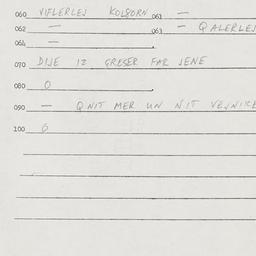 060 VIFLERLEJ KOLBORN 061 —
062 — 063 — QALERLEJ
064 —
070 DIJE IZ GRESER FAR JENE
080 O
090 — QNIT MER UN NIT VEJNIKE
100 O